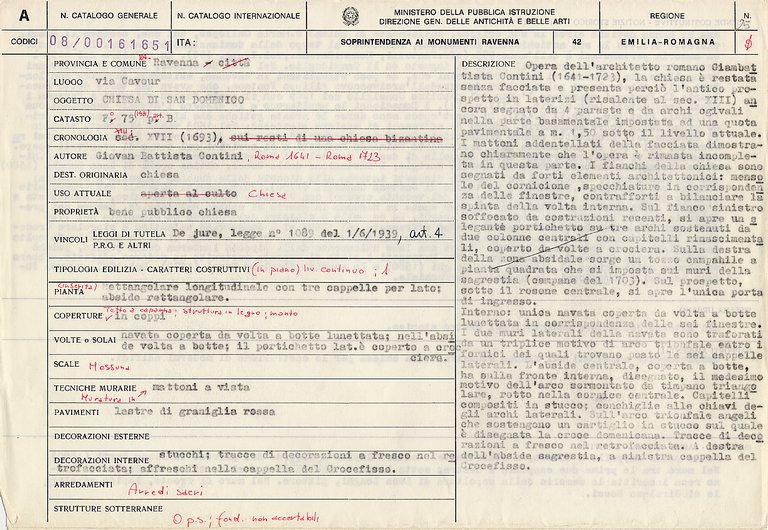 A
N. CATALOGO GENERALE
N. CATALOGO INTERNAZIONALE
MINISTERO DELLA PUBBLICA ISTRUZIONE
DIREZIONE GEN. DELLE ANTICHITÀ E BELLE ARTI
REGIONE
N.
25
CODICI
08/00161651
ITA:
SOPRINTENDENZA AI MONUMENTI RAVENNA
42
EMILIA-ROMAGNA
PROVINCIA E COMUNE Ravenna città
LUOGO via Cavour
OGGETTO CHIESA DI SAN DOMENICO
CATASTO F. 75 p. B.
CRONOLOGIA XIII sec. XVII (1693), sui resti di una chiesa bizantina
AUTORE Giovan Battista Contini, Roma 1641 - Roma 1723
DEST. ORIGINARIA chiesa
USO ATTUALE aperta al culto Chiesa
PROPRIETÀ bene pubblico chiesa
VINCOLI LEGGI DI TUTELA De jure, legge n° 1089 del 1/6/1939, art. 4
P.R.G. E ALTRI
TIPOLOGIA EDILIZIA - CARATTERI COSTRUTTIVI (in piano) liv. continuo; 1
PIANTA (inscritta) Rettangolare longitudinale con tre cappelle per lato;
abside rettangolare.
COPERTURE Tetto a capanna; struttura in legno; manto
in coppi
VOLTE o SOLAI navata coperta da volta a botte lunettata; nell'absi
de volta a botte; il portichetto lat.è coperto a cro
ciera.
SCALE Nessuna
TECNICHE MURARIE mattoni a vista
Muratura in
PAVIMENTI lastre di graniglia rossa
DECORAZIONI ESTERNE
DECORAZIONI INTERNE stucchi; tracce di decorazioni a fresco nel re
trofacciata; affreschi nella cappella del Crocefisso.
ARREDAMENTI Arredi sacri
STRUTTURE SOTTERRANEE O.p.s.; fond. non accertabili
DESCRIZIONE Opera dell'architetto romano Giambat
tista Contini (1641-1723), la chiesa è restata
senza facciata e presenta perciò l'antico pro
spetto in laterizi (risalente al sec. XIII) an
cora segnato da 4 paraste e da archi ogivali
nella parte basamentale impostata ad una quota
pavimentale a m. 1,50 sotto il livello attuale.
I mattoni addentellati della facciata dimostra
no chiaramente che l'opera è rimasta incomple
ta in questa parte. I fianchi della chiesa sono
segnati da forti elementi architettonici: menso
le del cornicione, specchiature in corrisponden
za delle finestre, contrafforti a bilanciare la
spinta della volta interna. Sul fianco sinistro
soffocato da costruzioni recenti, si apre un e
legante portichetto su tre archi sostenuti da
due colonne centrali con capitelli rinascimenta
li, coperto da volte a crociera. Sulla destra
della zona absidale sorge un tozzo campanile a
pianta quadrata che si imposta sui muri della
sagrestia (campane del 1703). Sul prospetto,
sotto il rosone centrale, si apre l'unica porta
di ingresso.
Interno: unica navata coperta da volta a botte
lunettata in corrispondenza delle sei finestre.
I due muri laterali della navata sono traforati
da un triplice motivo di arco trionfale entro i
fornici dei quali trovano posto le sei cappelle
laterali. L'abside centrale, coperta a botte,
ha sulla fronte interna, disegnato, il medesimo
motivo dell'arco sormontato da timpano triango
lare, rotto nella cornice centrale. Capitelli
compositi in stucco; conchiglie alle chiavi de-
gli archi laterali. Sull'arco trionfale angeli
che sostengono un cartiglio in stucco sul quale
è disegnata la croce domenicana. Tracce di deco
razioni a fresco nel retrofacciata. A destra
dell'abside sagrestia, a sinistra cappella del
Crocefisso.